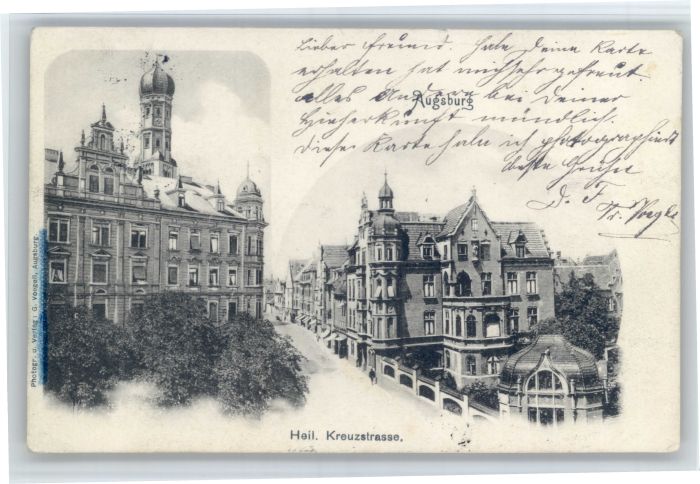 Lieber Freund. Habe Deine Karte
erhalten hat mich sehr gefreut.
alles Andere bei Deiner
Hierherkunft mündlich.
Diese Karte habe ich photographiert
beste Grüße
D. F.
Augsburg
Photogr. u. Verlag: G. Vongeil, Augsburg.
Heil. Kreuzstrasse.